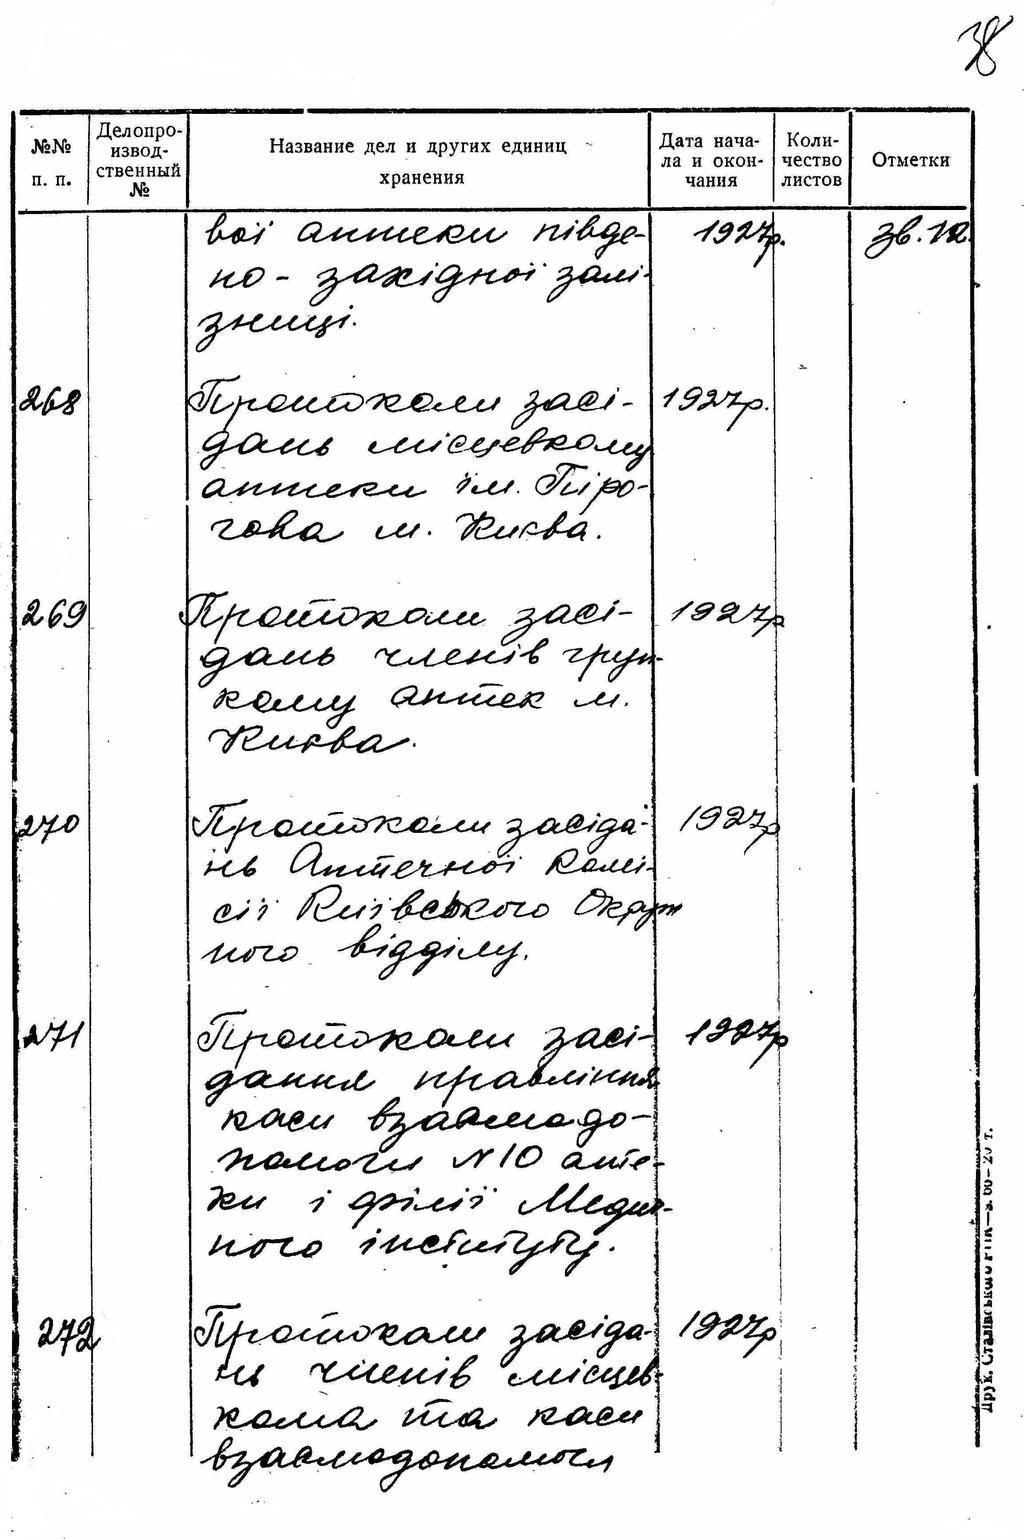 38
№№ п. п.
Делопро-
извод-
ственный
№
Название дел и других единиц
хранения
Дата нача-
ла и окон-
чания
Коли-
чество
листов
Отметки
вої аптеки півде- 1927р.
но - західної залі-
зниці.
268 Протоколи засі- 1927р.
дань місцевкому
аптеки ім. Піро-
гова м. Києва.
269 Протоколи засі- 1927р
дань членів груп-
кому аптек м.
Києва.
270 Протоколи засіда- 1927р
нь Аптечної Комі-
сії Київського Окруж
ного відділу.
271 Протоколи засі- 1927р
дання правління
каси взаємодо-
помоги №10 апте-
ки і філії Медич-
ного інституту.
272 Протоколи засіда- 1927р
нь членів місцев-
кома та каси
взаємодопомоги
Друк. Сталінського